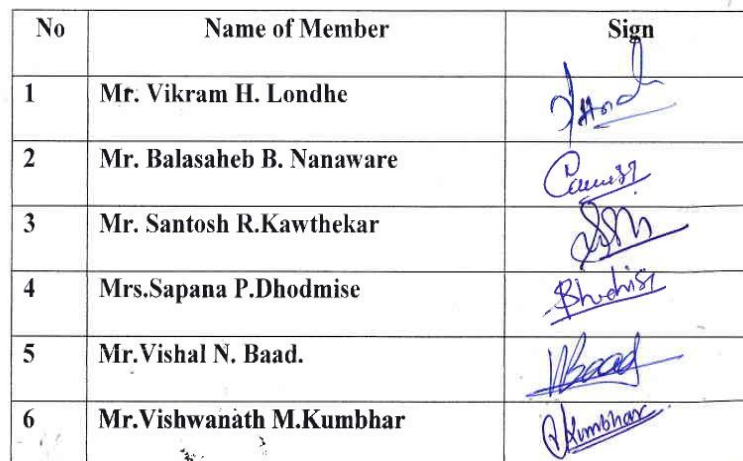 No Name of Member Sign
1 Mr. Vikram H. Londhe
2 Mr. Balasaheb B. Nanaware
3 Mr. Santosh R.Kawthekar
4 Mrs.Sapana P.Dhodmise
5 Mr.Vishal N. Baad. VBaad
6 Mr.Vishwanath M.Kumbhar VKumbhar